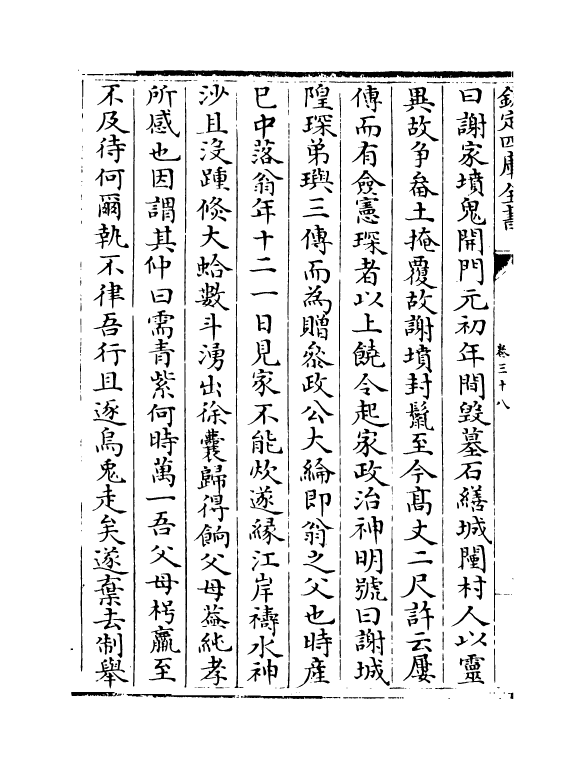 欽定四庫全書
卷三十八
曰謝家墳鬼開門元初年間毀墓石繕城闉村人以靈
異故争畚土掩覆故謝墳封鬛至今髙丈二尺許云屢
傳而有僉憲琛者以上饒令起家政治神明號曰謝城
隍琛弟璵三傳而為贈叅政公大綸即翁之父也時産
已中落翁年十二一日見家不能炊遂縁江岸禱水神
沙且没踵倐大蛤數斗湧出徐囊歸得餉父母葢純孝
所感也因謂其仲曰需青紫何時萬一吾父母枵羸至
不及待何爾執不律吾行且逐烏兎走矣遂棄去制舉